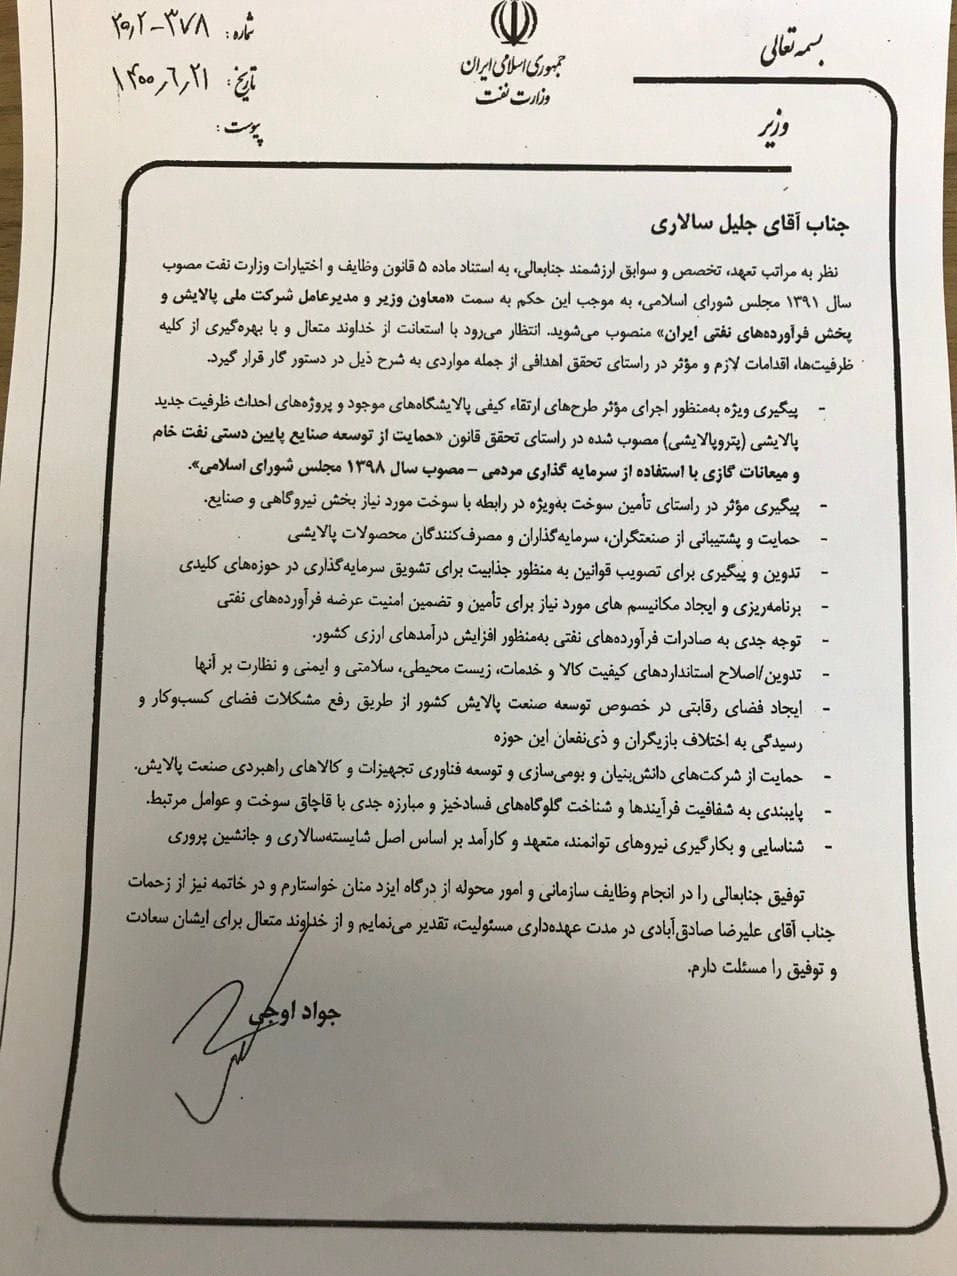 بسمه تعالی
جمهوری اسلامی ایران
وزارت نفت
وزیر
شماره : ۳۷۸-۲۰٫۲
تاریخ : ۱۴۰۰٫۶٫۲۱
پیوست :
جناب آقای جلیل سالاری
نظر به مراتب تعهد، تخصص و سوابق ارزشمند جنابعالی، به استناد ماده ۵ قانون وظایف و اختیارات وزارت نفت مصوب
سال ۱۳۹۱ مجلس شورای اسلامی، به موجب این حکم به سمت «معاون وزیر و مدیرعامل شرکت ملی پالایش و
پخش فرآورده‌های نفتی ایران» منصوب می‌شوید. انتظار می‌رود با استعانت از خداوند متعال و با بهره‌گیری از کلیه
ظرفیت‌ها، اقدامات لازم و مؤثر در راستای تحقق اهدافی از جمله مواردی به شرح ذیل در دستور گار قرار گیرد.
- پیگیری ویژه به‌منظور اجرای مؤثر طرح‌های ارتقاء کیفی پالایشگاه‌های موجود و پروژه‌های احداث ظرفیت جدید
پالایشی (پتروپالایشی) مصوب شده در راستای تحقق قانون «حمایت از توسعه صنایع پایین دستی نفت خام
و میعانات گازی با استفاده از سرمایه گذاری مردمی – مصوب سال ۱۳۹۸ مجلس شورای اسلامی».
- پیگیری مؤثر در راستای تأمین سوخت به‌ویژه در رابطه با سوخت مورد نیاز بخش نیروگاهی و صنایع.
- حمایت و پشتیبانی از صنعتگران، سرمایه‌گذاران و مصرف‌کنندگان محصولات پالایشی
- تدوین و پیگیری برای تصویب قوانین به منظور جذابیت برای تشویق سرمایه‌گذاری در حوزه‌های کلیدی
- برنامه‌ریزی و ایجاد مکانیسم های مورد نیاز برای تأمین و تضمین امنیت عرضه فرآورده‌های نفتی
- توجه جدی به صادرات فرآورده‌های نفتی به‌منظور افزایش درآمدهای ارزی کشور.
- تدوین/اصلاح استانداردهای کیفیت کالا و خدمات، زیست محیطی، سلامتی و ایمنی و نظارت بر آنها
- ایجاد فضای رقابتی در خصوص توسعه صنعت پالایش کشور از طریق رفع مشکلات فضای کسب‌وکار و
رسیدگی به اختلاف بازیگران و ذی‌نفعان این حوزه
- حمایت از شرکت‌های دانش‌بنیان و بومی‌سازی و توسعه فناوری تجهیزات و کالاهای راهبردی صنعت پالایش.
- پایبندی به شفافیت فرآیندها و شناخت گلوگاه‌های فسادخیز و مبارزه جدی با قاچاق سوخت و عوامل مرتبط.
- شناسایی و بکارگیری نیروهای توانمند، متعهد و کارآمد بر اساس اصل شایسته‌سالاری و جانشین پروری
توفیق جنابعالی را در انجام وظایف سازمانی و امور محوله از درگاه ایزد منان خواستارم و در خاتمه نیز از زحمات
جناب آقای علیرضا صادق‌آبادی در مدت عهده‌داری مسئولیت، تقدیر می‌نمایم و از خداوند متعال برای ایشان سعادت
و توفیق را مسئلت دارم.
جواد اوجی